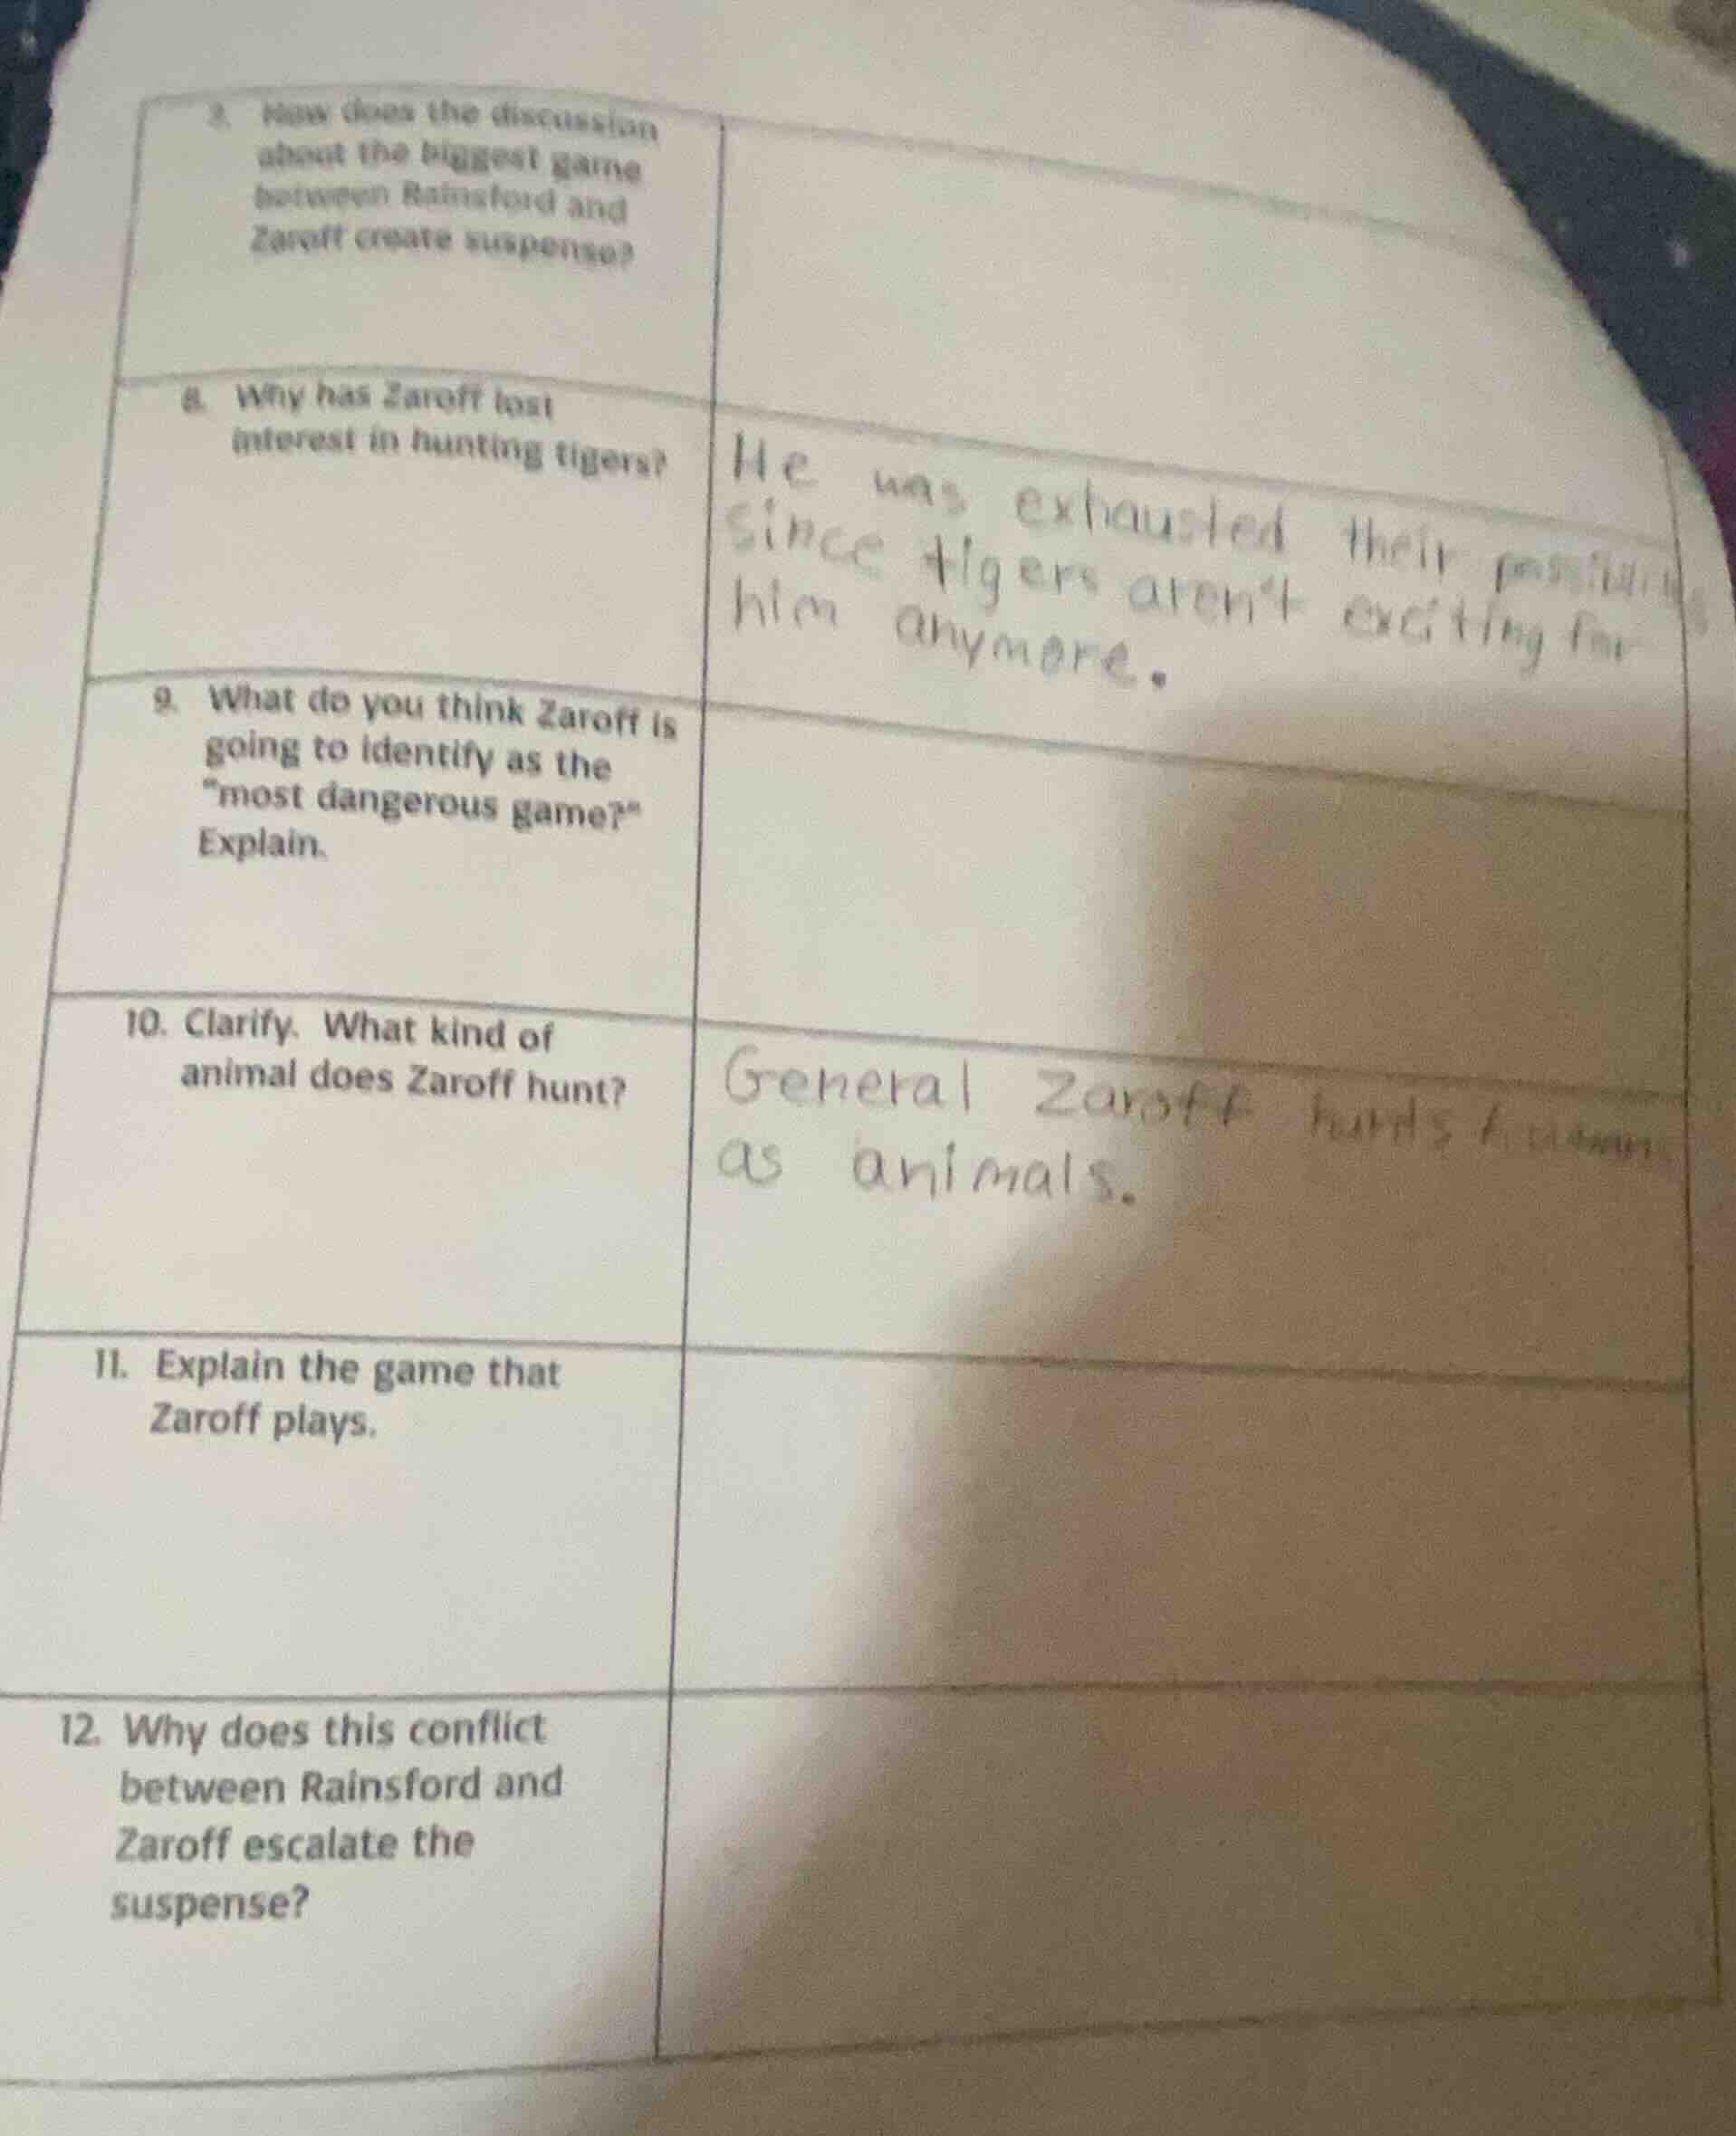 How does the discussion
about the biggest game
between Rainsford and
Zaroff create suspense?
8. Why has Zaroff lost
interest in hunting tigers?
He was exhausted their
since tigers aren't exciting for
him anymore.
9. What do you think Zaroff is
going to identify as the
"most dangerous game?"
Explain.
10. Clarify. What kind of
animal does Zaroff hunt?
General Zaroff hunts
as animals.
11. Explain the game that
Zaroff plays.
12. Why does this conflict
between Rainsford and
Zaroff escalate the
suspense?